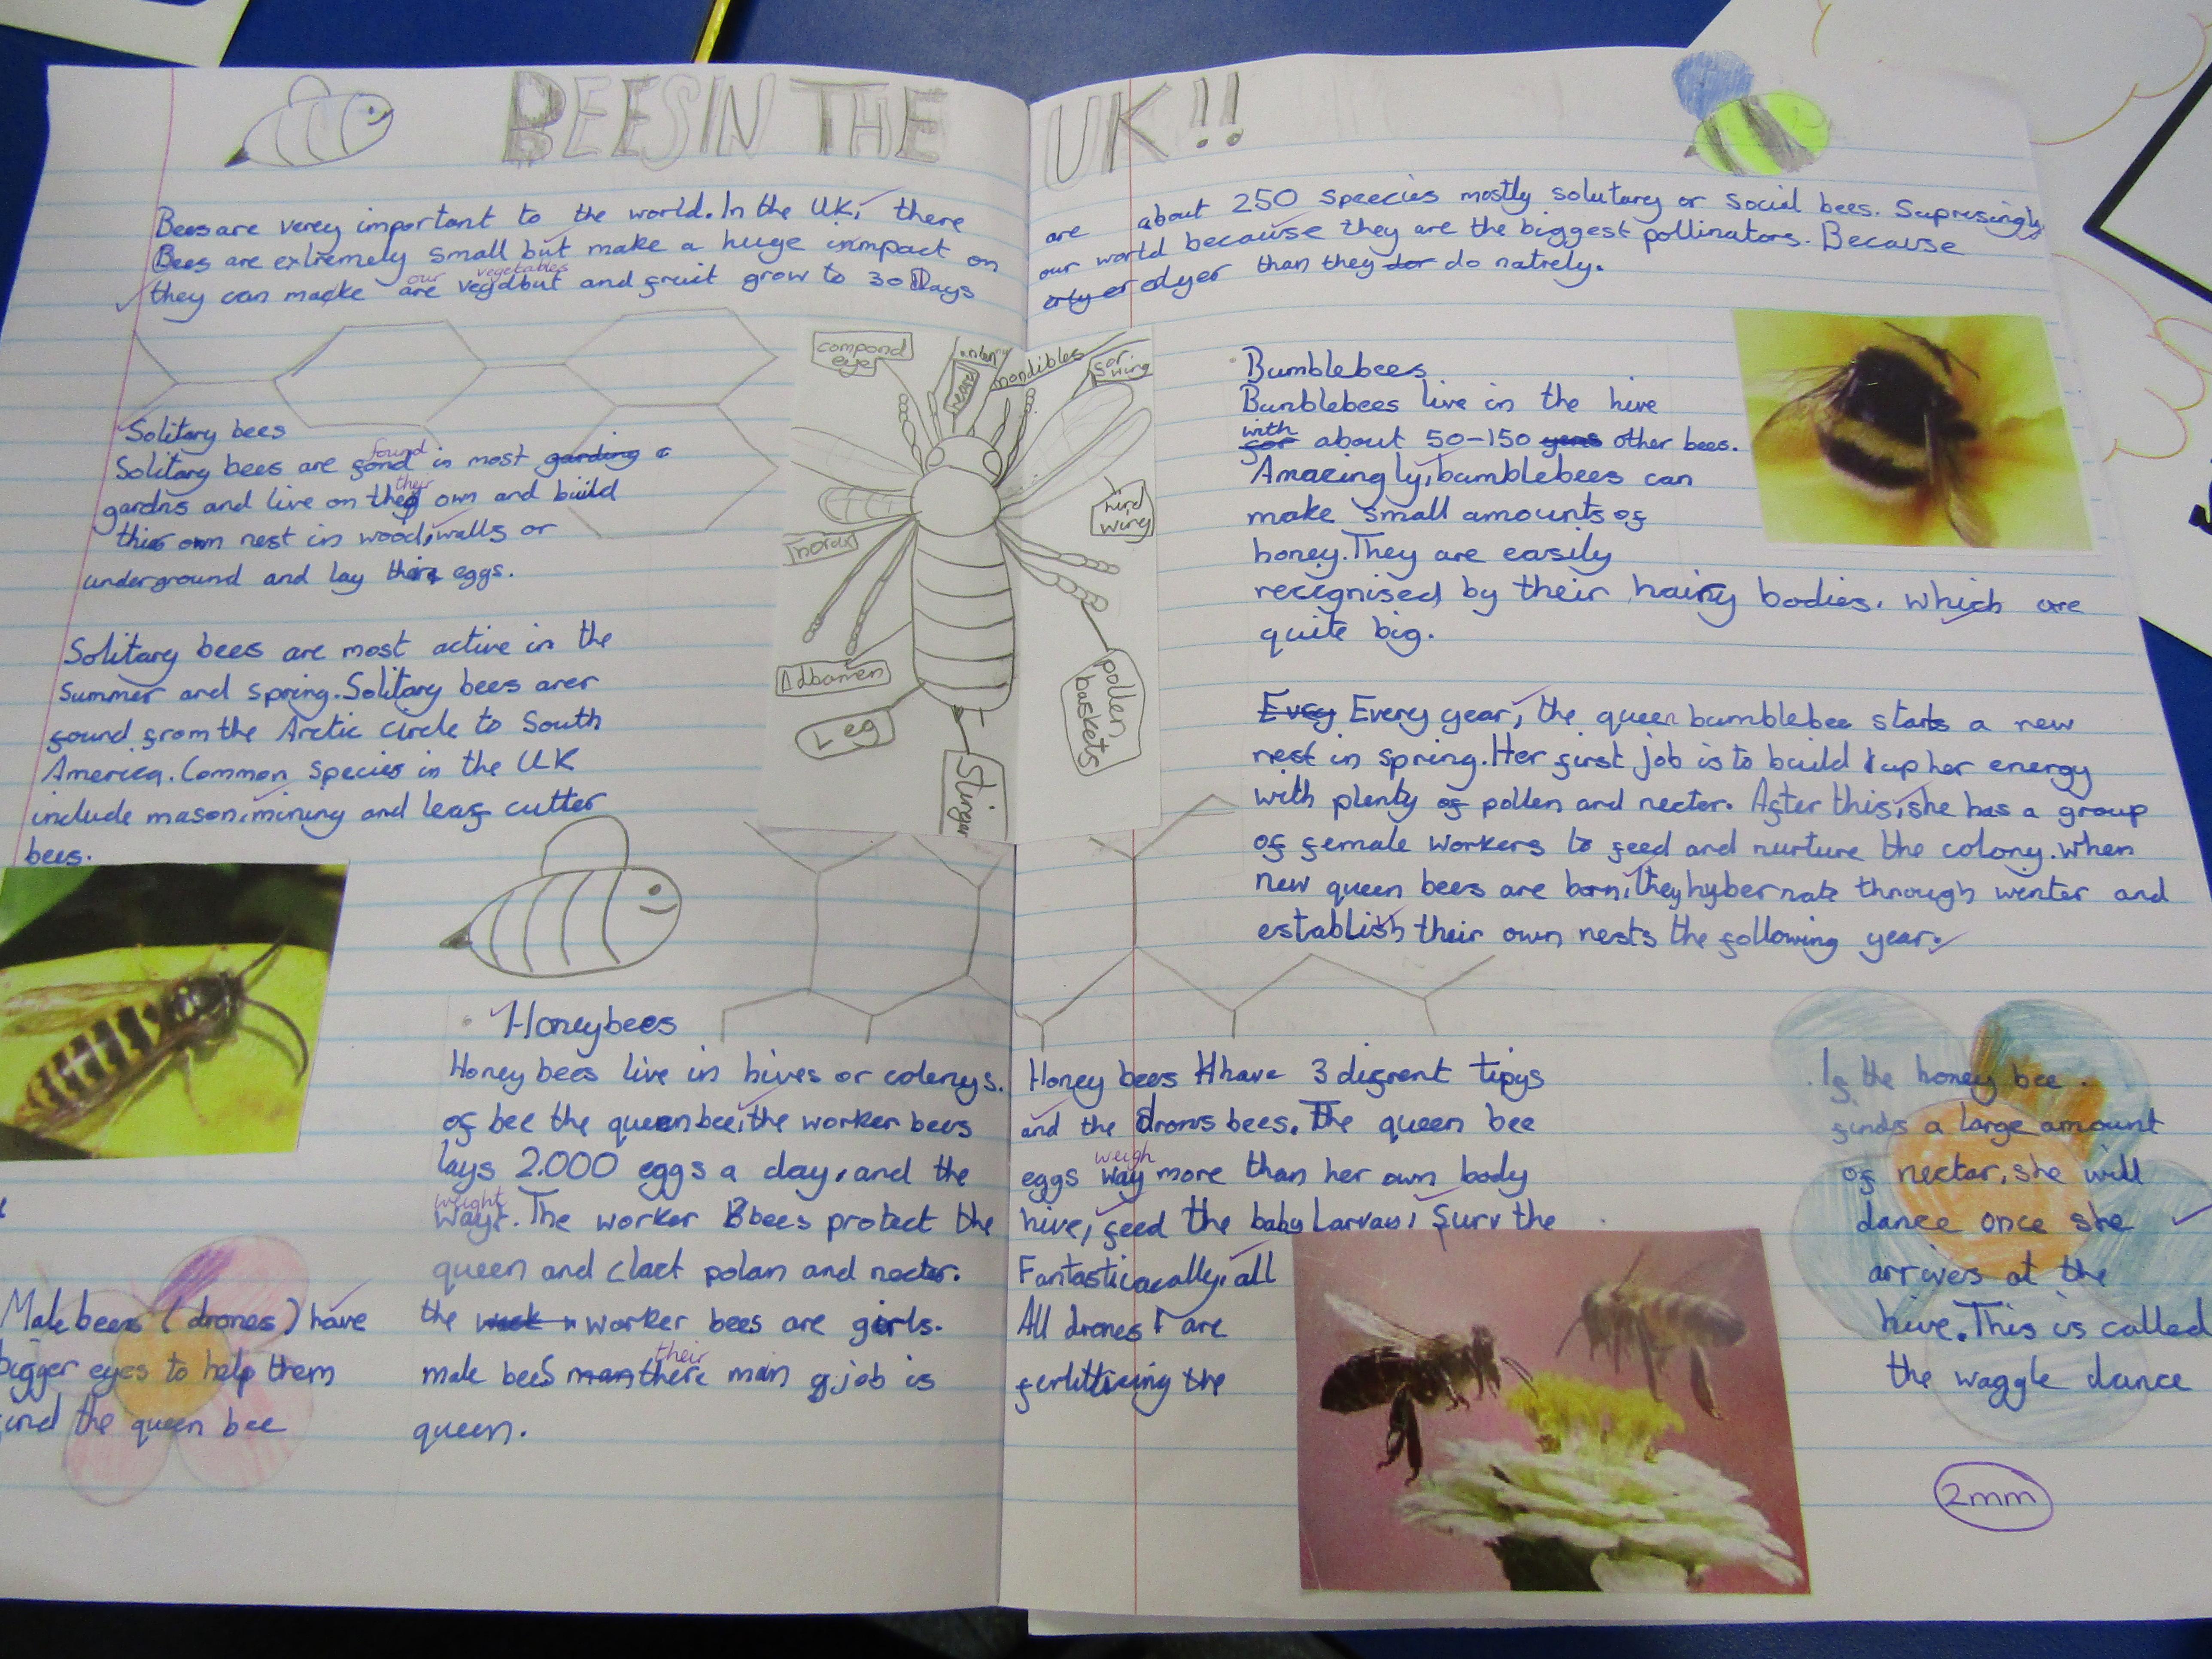 BEES IN THE UK!!
Bees are verey important to the world. In the UK, there are about 250 speecies mostly solutary or social bees. Suprisingly
Bees are extremely small but make a huge inmpact on our world because they are the biggest pollinators. Because
they can macke are vegdbut and fruit grow to 30 Days odyer than they dor do natrely.
our vegetables
compond
eye
mandibles
wing
hind
wing
Adbomen
Leg
Stinger
pollen
baskets
Solitary bees
Solitary bees are fond in most garding
found
gardns and live on they own and build
their
own nest in wood, walls or
underground and lay their eggs.
Solitary bees are most active in the
summer and spring. Solitary bees arer
found from the Arctic circle to South
America. Common species in the UK
include mason, mining and leaf cutter
bees.
Bumblebees
Bumblebees live in the hive
with
for about 50-150 years other bees.
Amazingly, bumblebees can
make small amounts of
honey. They are easily
recignised by their hairy bodies. Which are
quite big.
Evey Every year, the queen bumblebee starts a new
nest in spring. Her first job is to build up her energy
with plenty of pollen and necter. After this, she has a group
of female workers to feed and nurture the colony. When
new queen bees are born, they hybernate through winter and
establish their own nests the following year.
Honeybees
Honey bees live in hives or colenys. Honey bees have 3 difrent tipys
of bee the queen bee, the worker bees and the drons bees. The queen bee
lays 2.000 eggs a day, and the eggs way more than her own body
weigh
wayt. The worker Bbees protect the hive, feed the baby Larvas, surv the
weight
queen and clact polan and necter. Fantasticacally, all
the worker bees are girls. All drones are
male bees there main job is ferlitising the
their
queen.
Male bees (drones) have
bigger eyes to help them
find the queen bee
If the honey bee
finds a large amount
of nectar, she will
dance once she
arrives at the
hive. This is called
the waggle dance
2mm